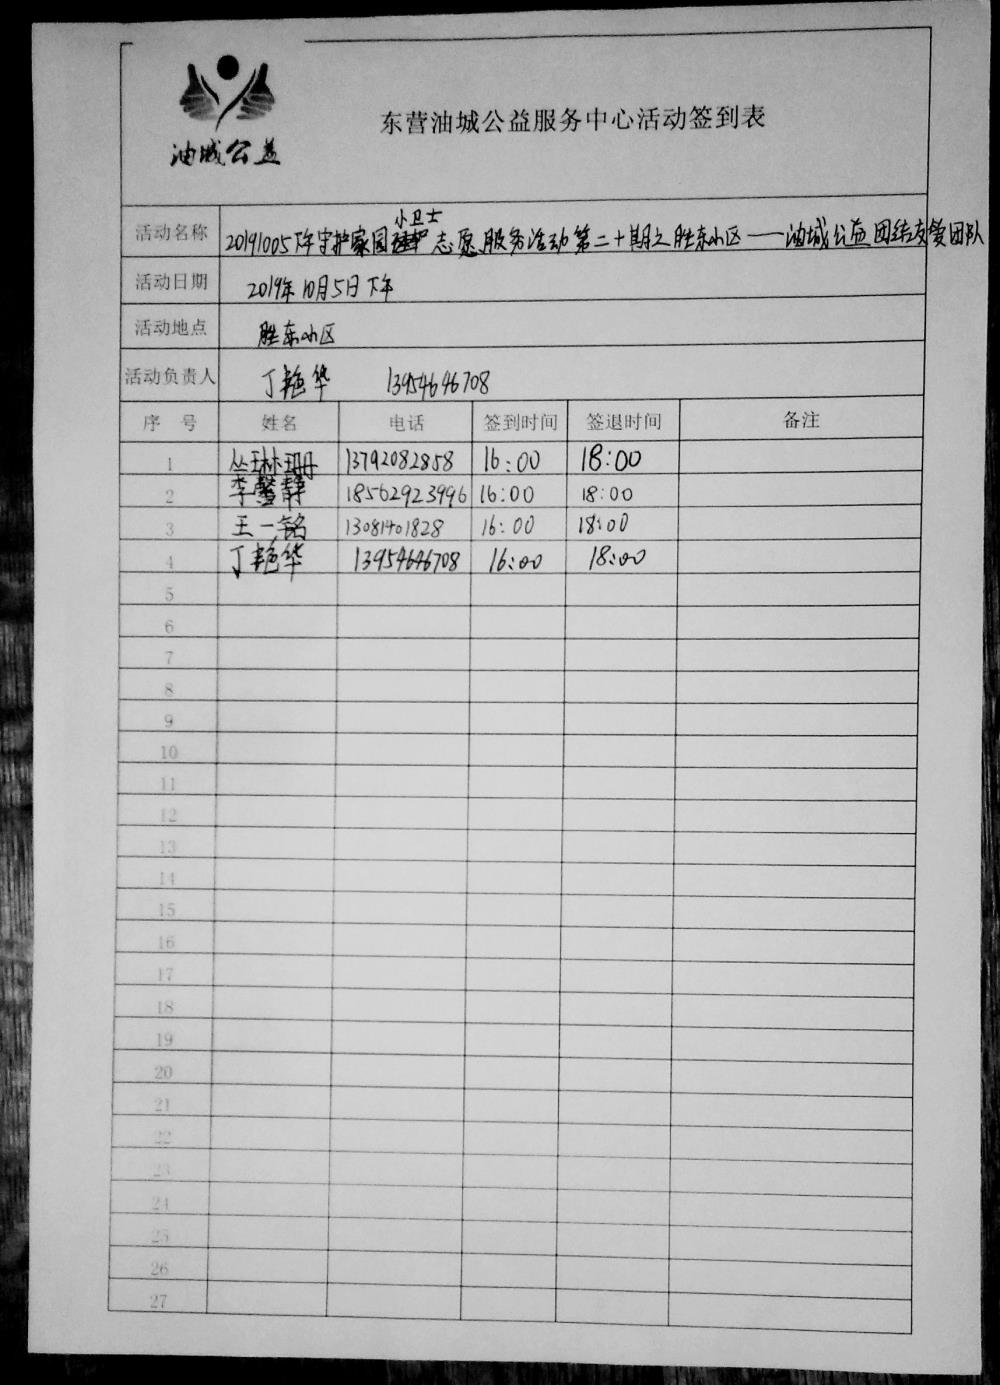 油城公益
东营油城公益服务中心活动签到表
小卫士
活动名称 20191005下午守护家园志愿服务活动第二十期之胜东小区——油城公益团结友爱团队
活动日期 2019年10月5日下午
活动地点 胜东小区
活动负责人 丁艳华 13954646708
序 号 姓名 电话 签到时间 签退时间 备注
1 丛琳珊 13792082858 16:00 18:00
2 李馨静 18562923996 16:00 18:00
3 王一铭 13081401828 16:00 18:00
4 丁艳华 13954646708 16:00 18:00
5
6
7
8
9
10
11
12
13
14
15
16
17
18
19
20
21
22
23
24
25
26
27